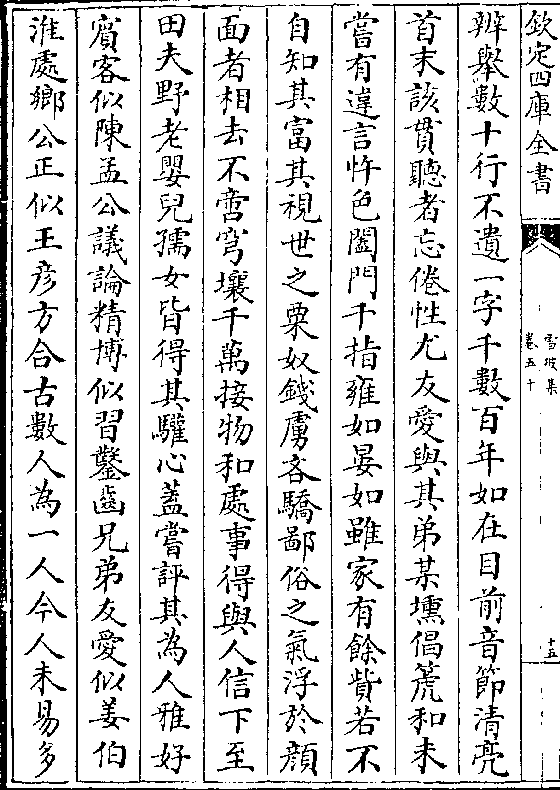 欽定四庫全書
雪坡集
卷五十
十五
辨舉數十行不遺一字千數百年如在目前音節清亮
首末該貫聽者忘倦性尤友愛與其弟某壎倡箎和未
嘗有違言忤色闔門千指雍如晏如雖家有餘貲若不
自知其富其視世之粟奴錢虜吝驕鄙俗之氣浮於顔
面者相去不啻穹壤千萬接物和處事得與人信下至
田夫野老嬰兒孺女皆得其驩心蓋嘗評其為人雅好
賓客似陳孟公議論精博似習鑿齒兄弟友愛似姜伯
淮處鄉公正似王彦方合古數人為一人今人未易多